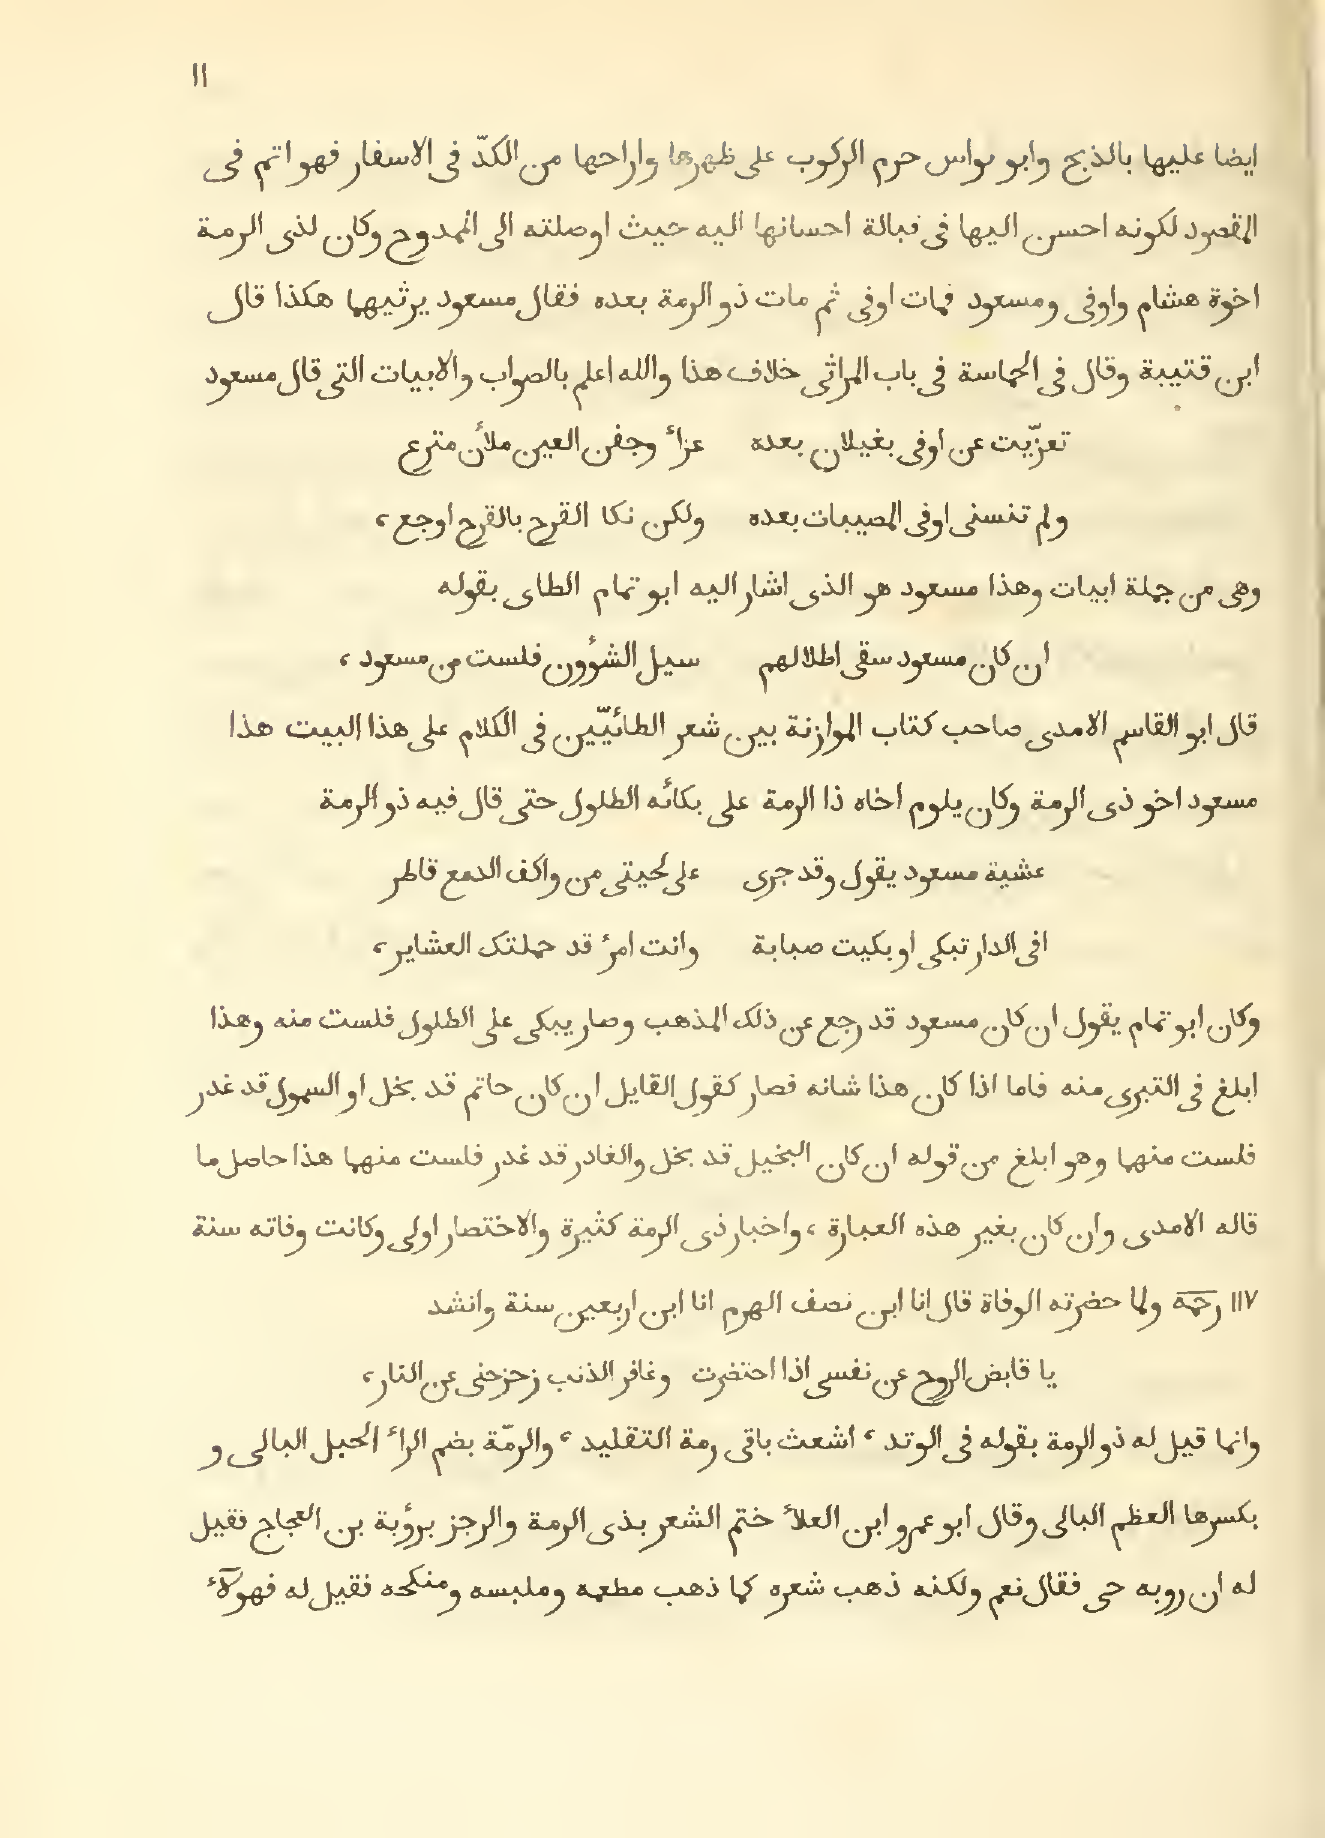 ١١
ايضا عليها بالذبح وابو نواس حرم الركوب على ظهرها واراحها من الكدّ فى الاسفار فهو اتم فى
المقصود لكونه احسن اليها فى قبالة احسانها اليه حيث اوصلته الى الممدوح وكان لذى الرمة
اخوة هشام واوفى ومسعود فمات اوفى ثم مات ذو الرمة بعده فقال مسعود يرثيهما هكذا قال
ابن قتيبة وقال فى الحماسة فى باب المراثى خلاف هذا والله اعلم بالصواب والابيات التى قال مسعود
تعزّيت عن اوفى بغيلان بعده عزاء وجفن العين ملأن مترع
ولم تنسنى اوفى المصيبات بعده ولكن نكا القرح بالقرح اوجع ،
وهى من جملة ابيات وهذا مسعود هو الذى اشار اليه ابو تمام الطاى بقوله
ان كان مسعود سقى اطلالهم سيل الشؤون فلست من مسعود ،
قال ابو القاسم الامدى صاحب كتاب الموازنة بين شعر الطائيّين فى الكلام على هذا البيت هذا
مسعود اخو ذى الرمة وكان يلوم اخاه ذا الرمة على بكائه الطلول حتى قال فيه ذو الرمة
عشية مسعود يقول وقد جرى على لحيتى من واكف الدمع قاطر
افى الدار تبكى او بكيت صبابة وانت امرء قد حملتك العشاير ،
وكان ابو تمام يقول ان كان مسعود قد رجع عن ذلك المذهب وصار يبكى على الطلول فلست منه وهذا
ابلغ فى التبرى منه فاما اذا كان هذا شانه فصار كقول القايل ان كان حاتم قد بخل او السمول قد غدر
فلست منهما وهو ابلغ من قوله ان كان البخيل قد بخل والغادر قد غدر فلست منهما هذا حاصل ما
قاله الامدى وان كان بغير هذه العبارة ، واخبار ذى الرمة كثيرة والاختصار اولى وكانت وفاته سنة
١١٧ رحمه ولما حضرته الوفاة قال انا ابن نصف الهرم انا ابن اربعين سنة وانشد
يا قابض الروح عن نفسى اذا احتضرت وغافر الذنب زحزحنى عن النار ،
وانما قيل له ذو الرمة بقوله فى الوتد ، اشعث باقى رمة التقليد ، والرمّة بضم الراء الحبل البالى و
بكسرها العظم البالى وقال ابو عمرو ابن العلاء ختم الشعر بذى الرمة والرجز برؤبة بن العجاج فقيل
له ان روبه حى فقال نعم ولكنه ذهب شعره كما ذهب مطعمه وملبسه ومنكحه فقيل له فهولآء